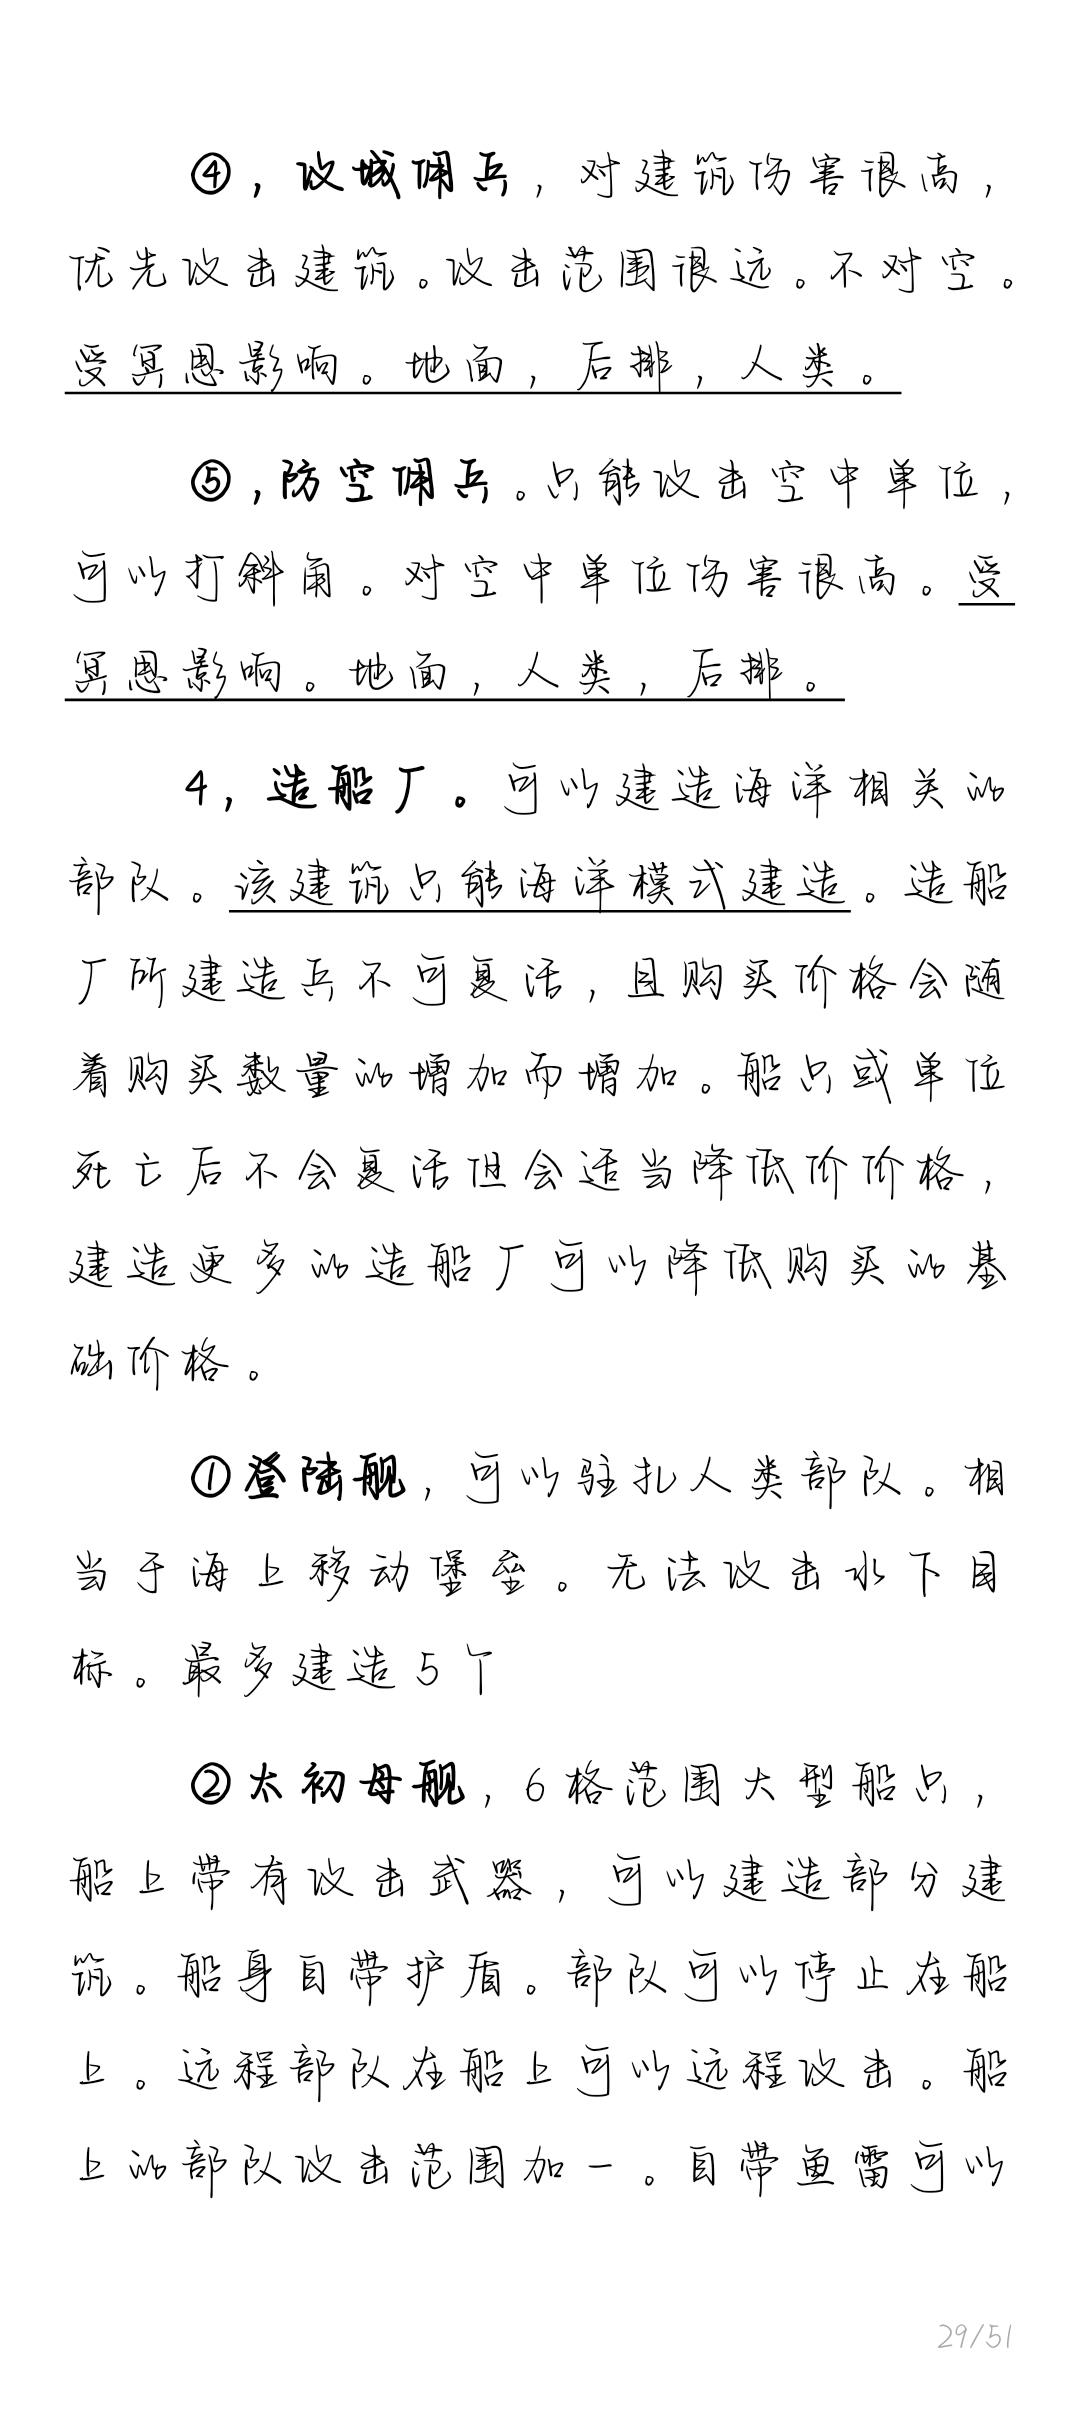 ④，攻城佣兵，对建筑伤害很高，
优先攻击建筑。攻击范围很远。不对空。
受冥恩影响。地面，后排，人类。
⑤，防空佣兵。只能攻击空中单位，
可以打斜角。对空中单位伤害很高。受
冥恩影响。地面，人类，后排。
4，造船厂。可以建造海洋相关的
部队。该建筑只能海洋模式建造。造船
厂所建造兵不可复活，且购买价格会随
着购买数量的增加而增加。船只或单位
死亡后不会复活但会适当降低价价格，
建造更多的造船厂可以降低购买的基
础价格。
①登陆舰，可以驻扎人类部队。相
当于海上移动堡垒。无法攻击水下目
标。最多建造5个
②太初母舰，6格范围大型船只，
船上带有攻击武器，可以建造部分建
筑。船身自带护盾。部队可以停止在船
上。远程部队在船上可以远程攻击。船
上的部队攻击范围加一。自带鱼雷可以
29/51